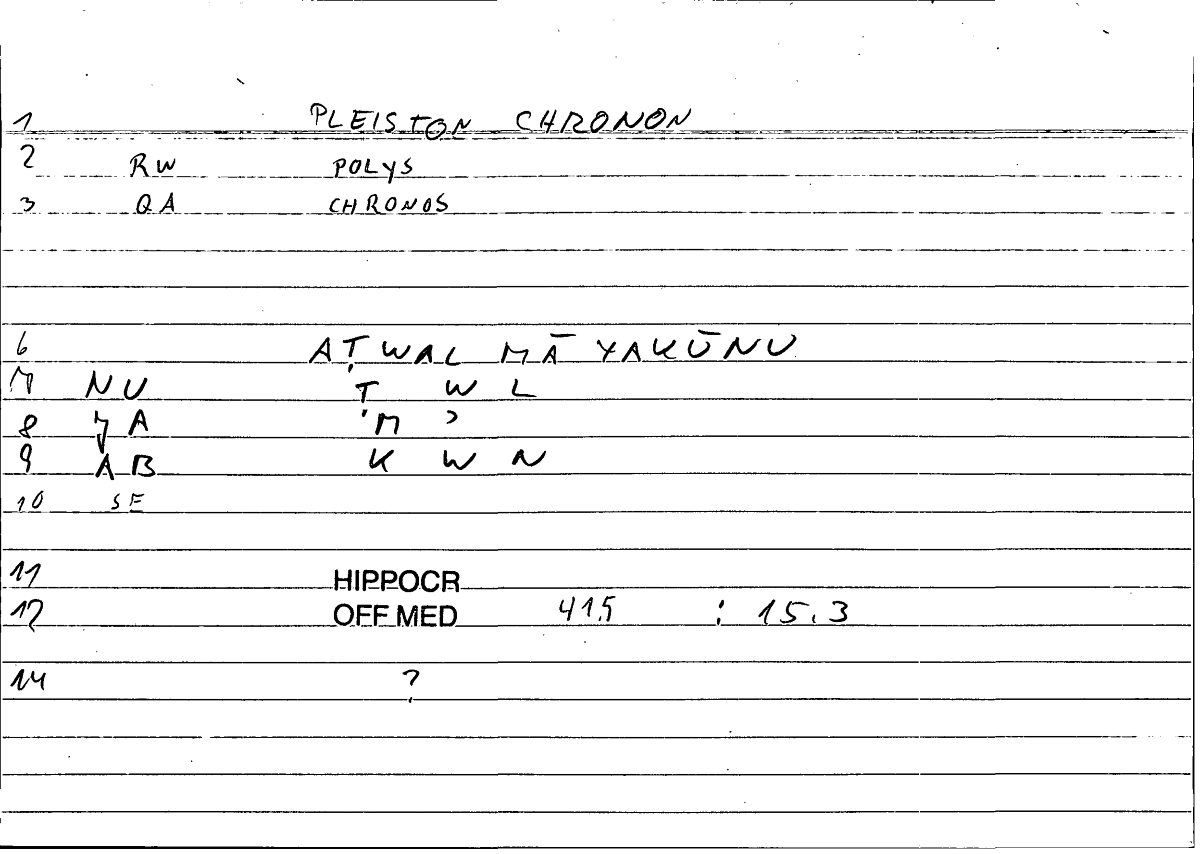 1 PLEISTON CHRONON
2 RW POLYS
3 QA CHRONOS
6 AṬWAL MĀ YAKŪNU
7 NU Ṭ W L
8 A M ʾ
9 AB K W N
10 SE
11 HIPPOCR
12 OFF MED 41,5 : 15.3
14 ?